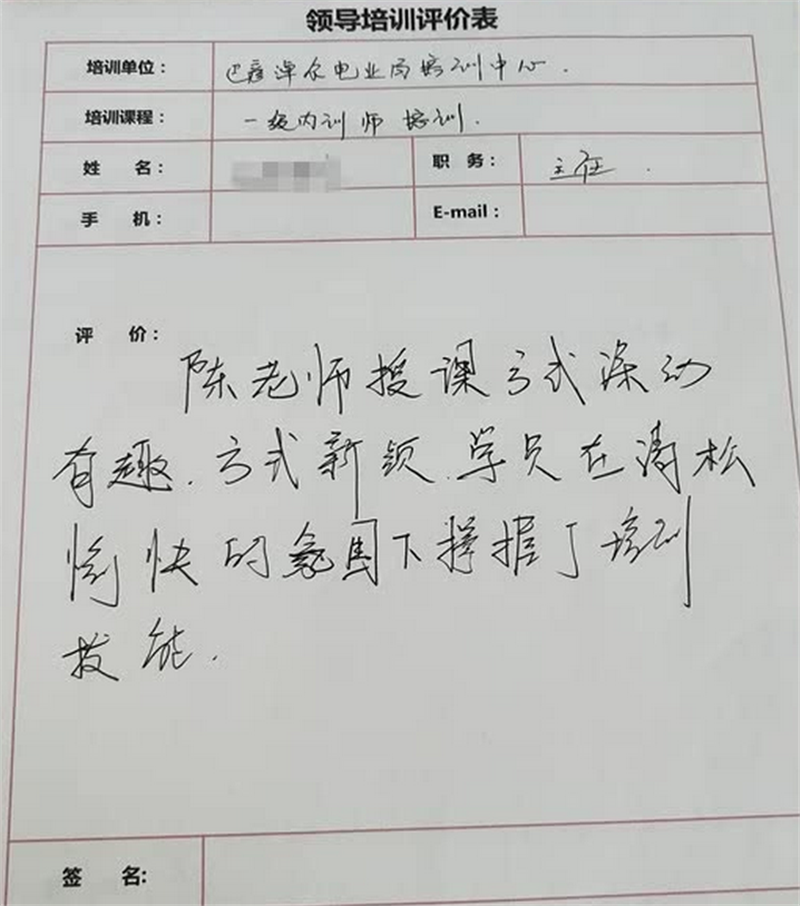 领导培训评价表
培训单位： 巴彦淖尔电业局培训中心.
培训课程： 一级内训师 培训.
姓 名： 职 务： 主任.
手 机： E-mail：
评 价：
陈老师授课方式深动
有趣.方式新颖.学员在清松
愉快的氛围下掌握了培训
技能.
签 名: